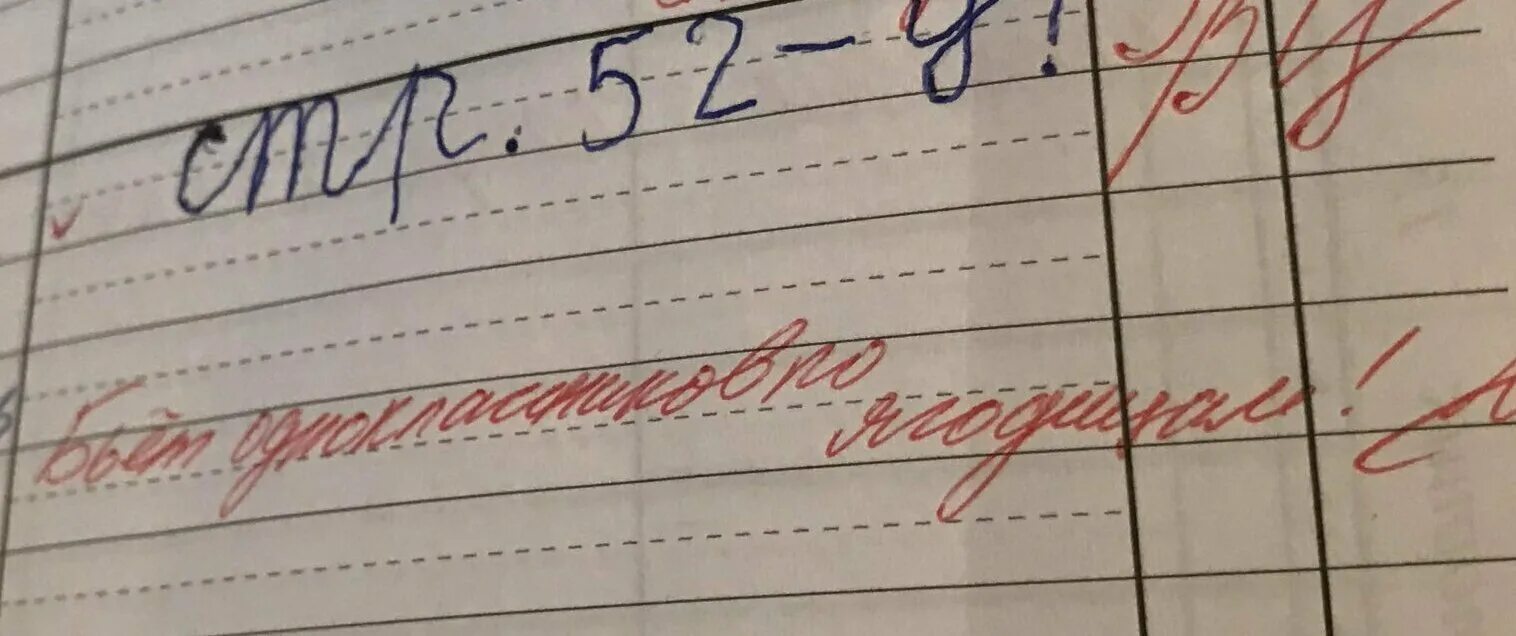 стр. 52-у!
Бьёт одноклассников по
ягодицам!